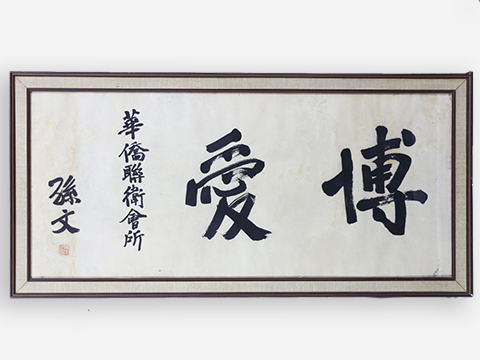 博愛
華僑聯衛會所
孫文